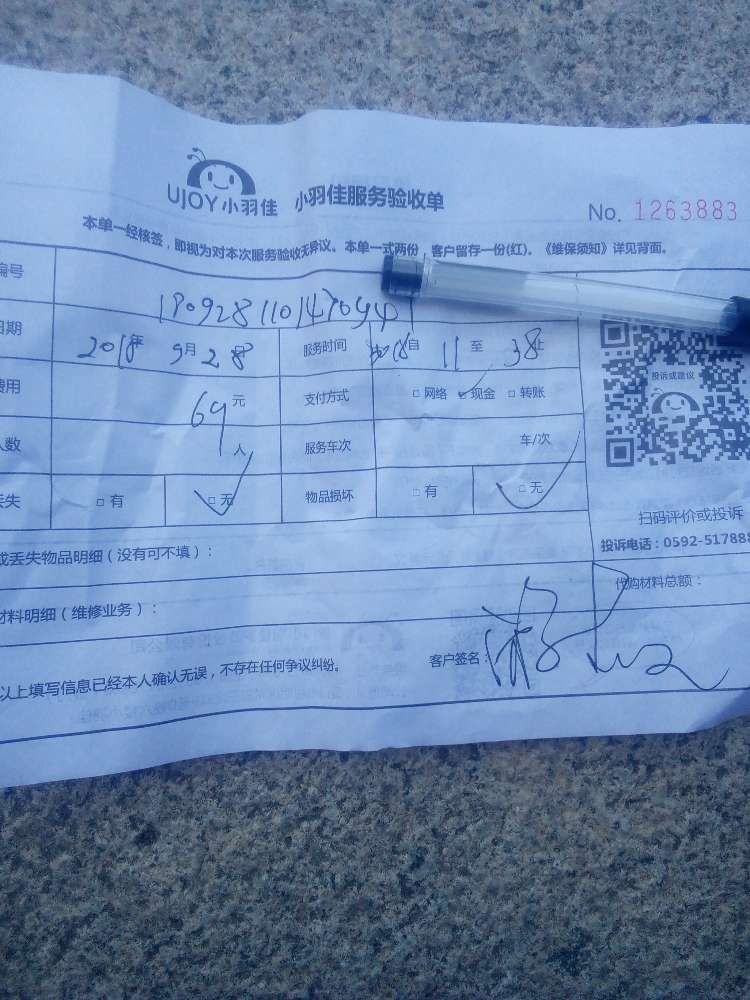 UJOY小羽佳 小羽佳服务验收单
No. 1263883
本单一经核签，即视为对本次服务验收无异议。本单一式两份，客户留存一份(红)。《维保须知》详见背面。
编号
日期 2018年 9月 28 服务时间 自 11 至 38止
费用 69 元 支付方式 □ 网络 ✓现金 □ 转账
人数 1 人 服务车次 车/次
丢失 □ 有 □ 无 物品损坏 □ 有 □ 无
投诉或建议
扫码评价或投诉
投诉电话：0592-517888
或丢失物品明细（没有可不填）：
代购材料总额：
材料明细（维修业务）：
以上填写信息已经本人确认无误，不存在任何争议纠纷。
客户签名：